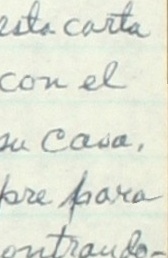 esta carta
con el
su casa,
pre para
ontrando-